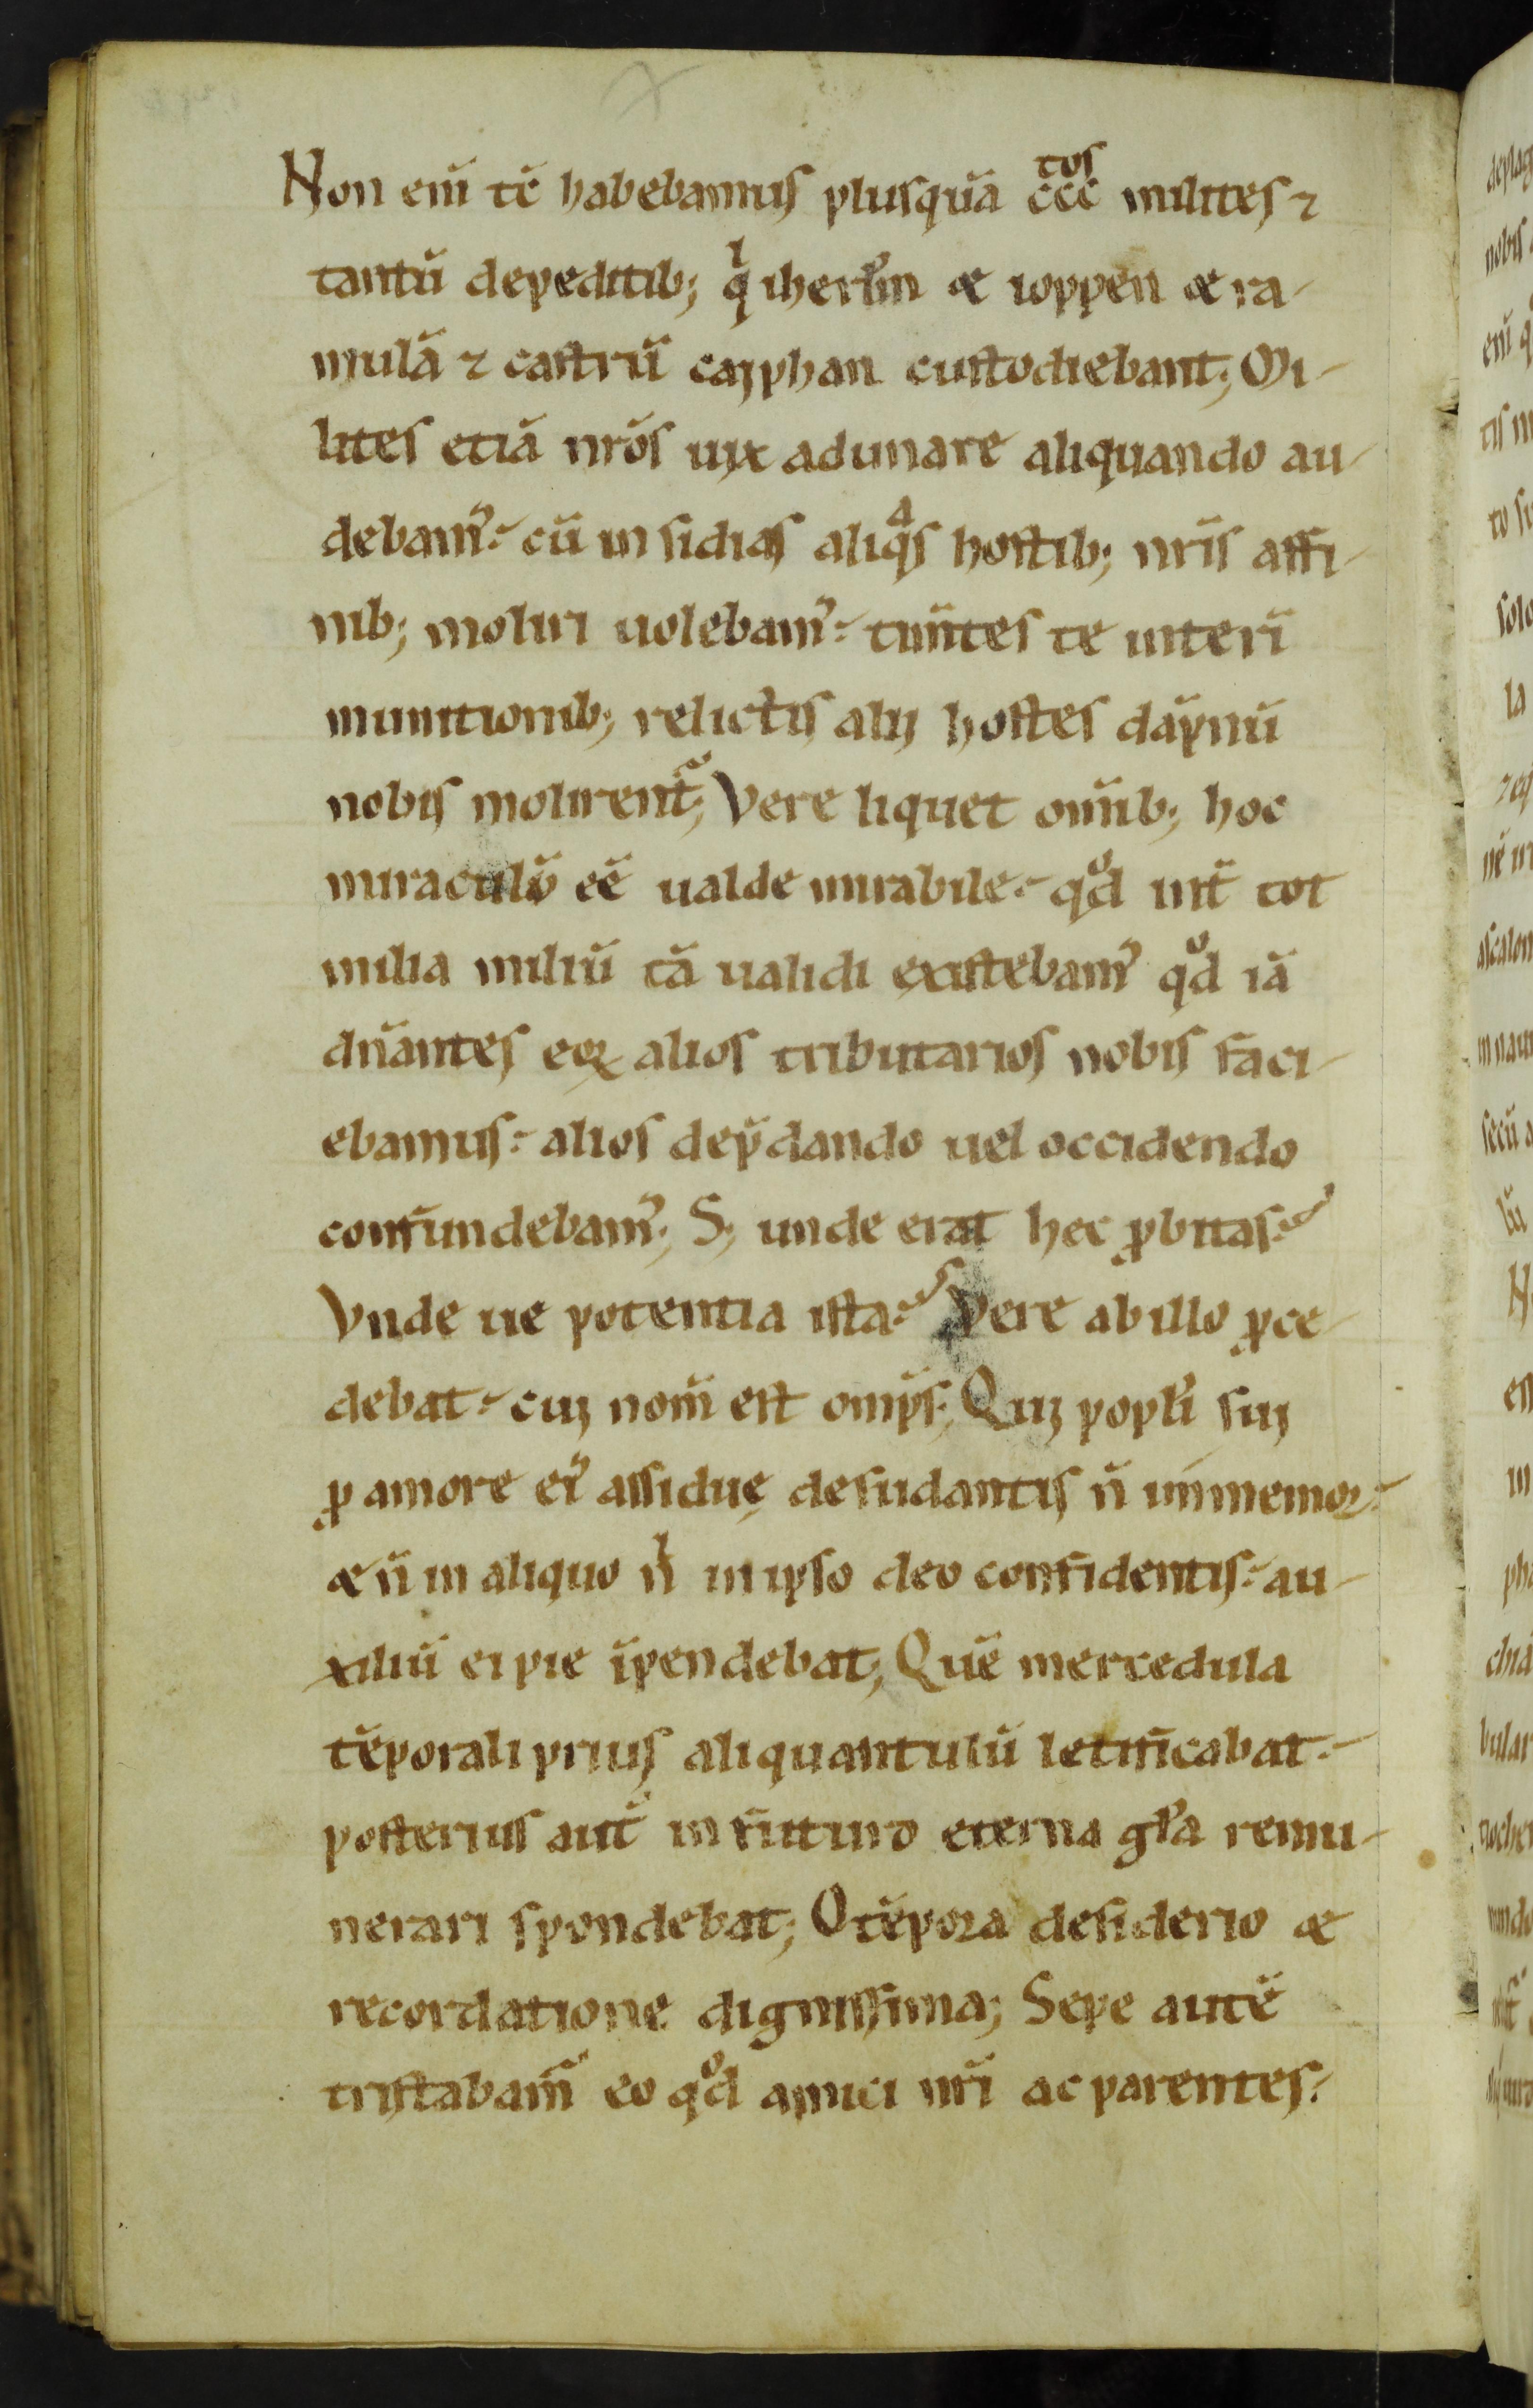 Non eni᷒ tē habebamus plusquā ccc^tos milites ⁊
tantū depeditib; qⁱ iherłm & ioppen & ra-
mulā ⁊ castrū cayphan custodiebant; Mi-
lites etiā nr̄os uix adunare aliquando au-
debam᷒: cū insidias aliqᵃs hostib; nr̄is affi-
nib; moliri uolebam᷒: tim̄tes ne interī
munitionib; relictis alii hostes dāpnū
nobis molirent᷑; Vere liquet om̄ib; hoc
miraculū eē ualde mirabile: qᵒd int̄ tot
milia miliū tā ualidi existebam᷒ qᵒd iā
dn̄antes eoꝝ alios tributarios nobis faci-
ebamus: alios dep̄dando uel occidendo
confundebam᷒; S; unde erat hec ꝓbitas?
Vnde ue potentia ista? Vere abillo ꝓce-
debat: cui᷒ nom̄ est omīps; Qui popłi sui
ꝓ amore ei᷒ assidue desudantis n̄ immemor:
& n̄ in aliquo nⁱ in ipso deo confidentis: au-
xiliū ei pie īpendebat; Quē mercedula
tēporali prius aliquantulū letificabat:
posterius aut̄ in futuro eterna gr̄a remu-
nerari spondebat; O tēpora desiderio &
recordatione dignissima; Sepe autē
tristabam᷑ eo qᵒd amici nr̄i ac parentes: